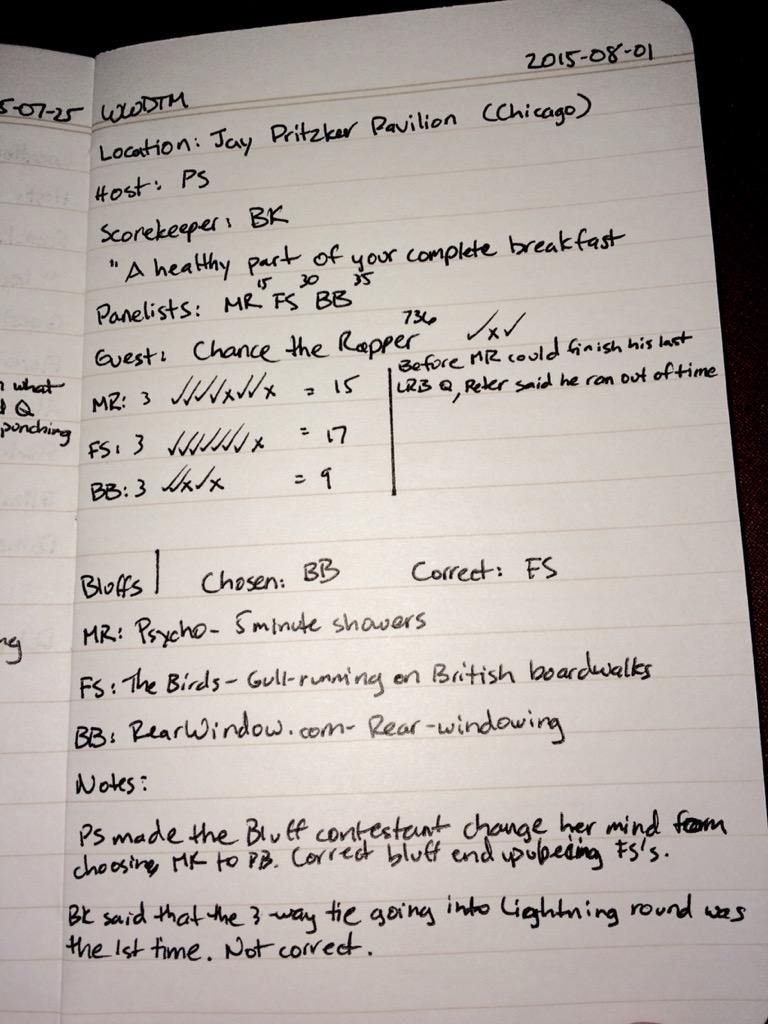 2015-08-01
5-07-25
WWDTM
Location: Jay Pritzker Pavilion (Chicago)
Host: PS
Scorekeeper: BK
"A healthy part of your complete breakfast
15 30 35
Panelists: MR FS BB
Guest: Chance the Rapper 736 ✓x✓
Before MR could finish his last
LRB Q, Peter said he ran out of time
n what
Q
punching
MR: 3 ✓✓✓✓x✓✓x = 15
FS: 3 ✓✓✓✓✓✓✓x = 17
BB: 3 ✓✓x✓x = 9
Bluffs | Chosen: BB Correct: FS
MR: Psycho - 5 minute showers
ng
FS: The Birds - Gull-running on British boardwalks
BB: RearWindow.com - Rear-windowing
Notes:
PS made the Bluff contestant change her mind from
choosing MR to BB. Correct bluff end up being FS's.
BK said that the 3-way tie going into Lightning round was
the 1st time. Not correct.